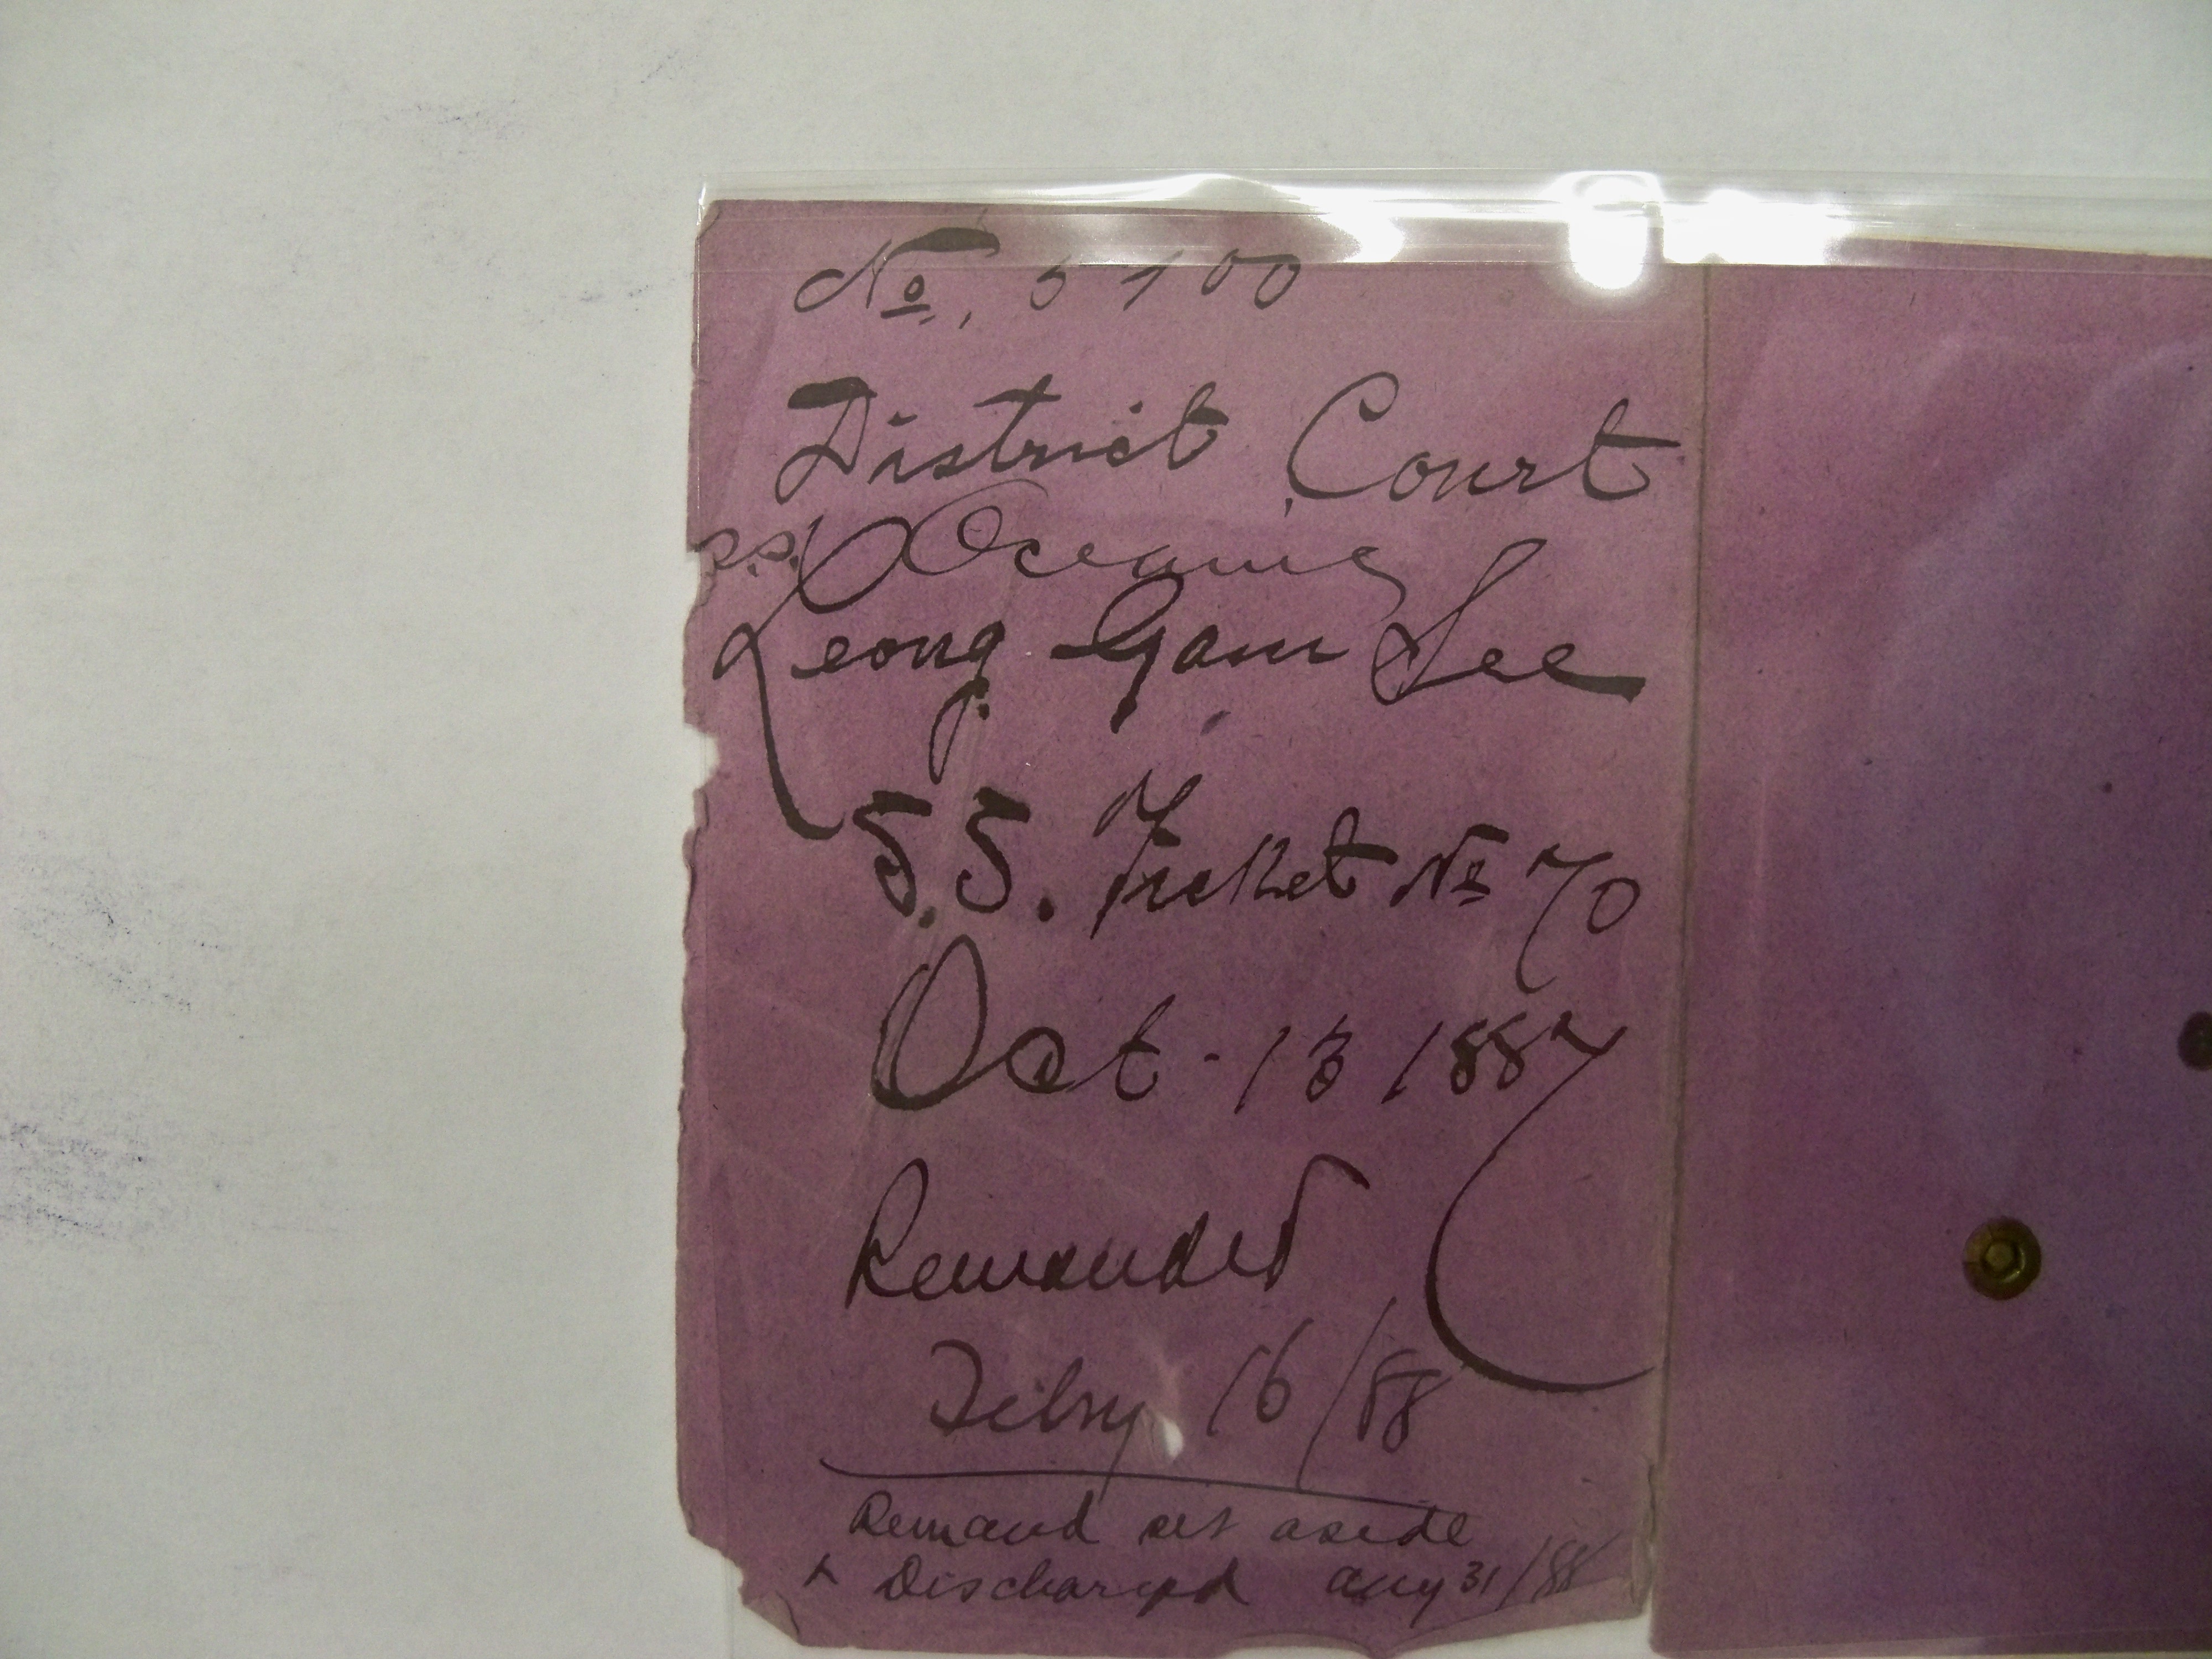 No. 5700
District Court
S.S. Oceanic
Leong Gam Lee
S.S. Ticket No 70
Oct. 13 1887
Remanded
Feby 16/88
Remand set aside
& Discharged Aug 31/88